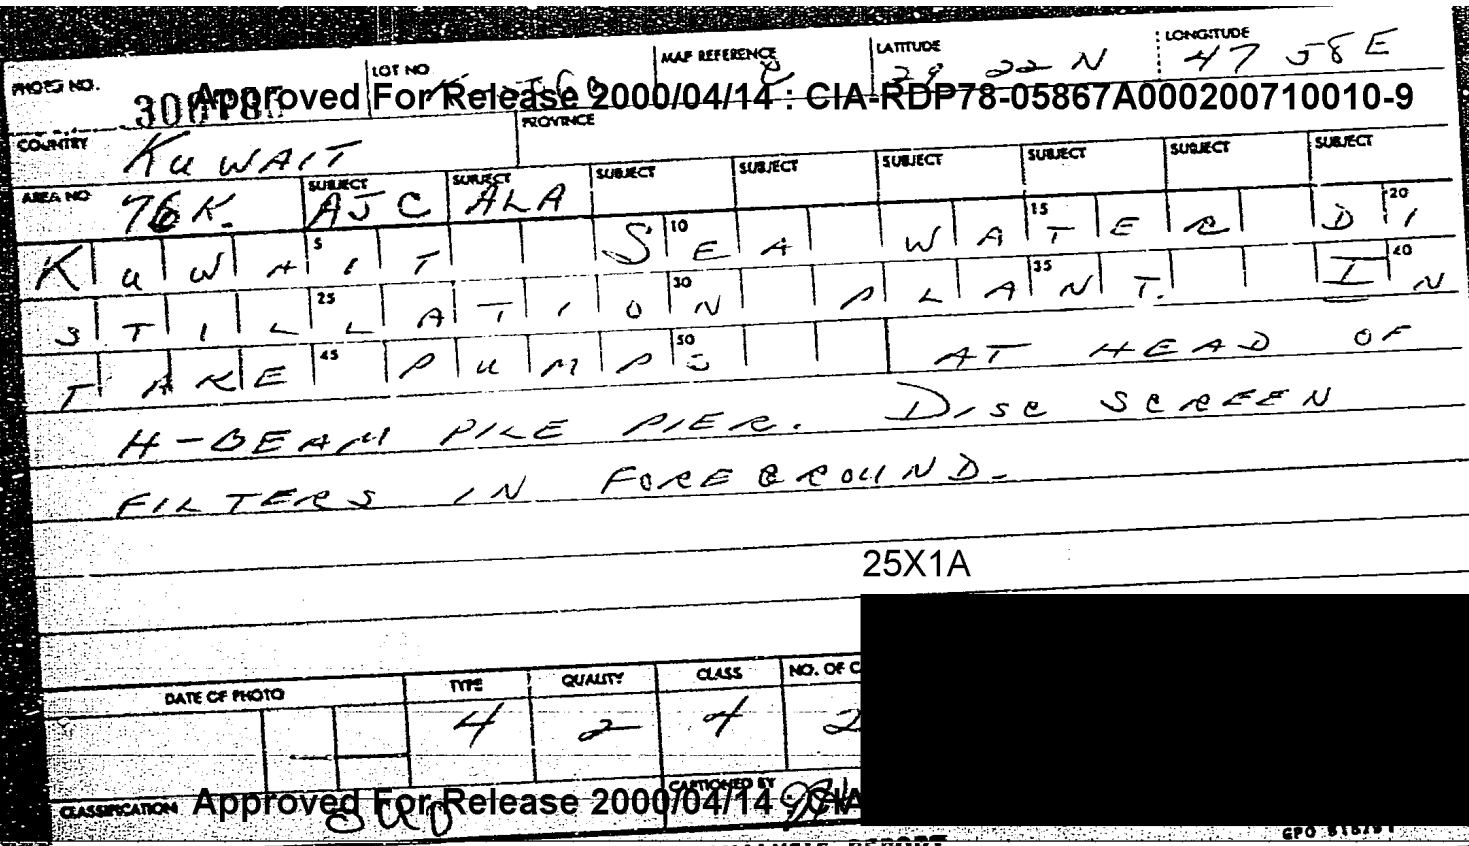 PHOTO NO. LOT NO MAP REFERENCE LATITUDE LONGITUDE
29 22 N 47 58 E
Approved For Release 2000/04/14 : CIA-RDP78-05867A000200710010-9
COUNTRY KUWAIT PROVINCE
AREA NO 76K. SUBJECT AJC SUBJECT ALA SUBJECT SUBJECT SUBJECT SUBJECT SUBJECT SUBJECT
5 10 15 20
KUWAIT SEA WATER DI
25 30 35 40
STILLATION PLANT. IN
45 50
TAKE PUMPS AT HEAD OF
H-BEAM PILE PIER. DISC SCREEN
FILTERS IN FOREGROUND.
25X1A
DATE OF PHOTO TYPE QUALITY CLASS NO. OF C
4 2 4 2
CLASSIFICATION CAPTIONED BY
Approved For Release 2000/04/14 : CIA
REPORT
GPO